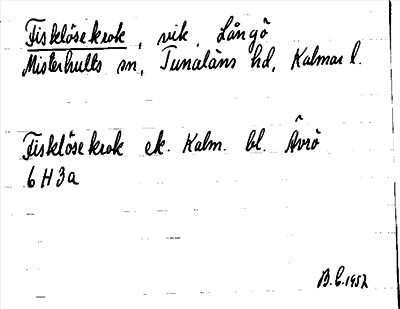 Fisklösekrok, vik, Långö
Misterhults sn, Tunaläns hd, Kalmar l.
Fisklösekrok ek. Kalm. bl. Ävrö
6H3a
B.E.1952